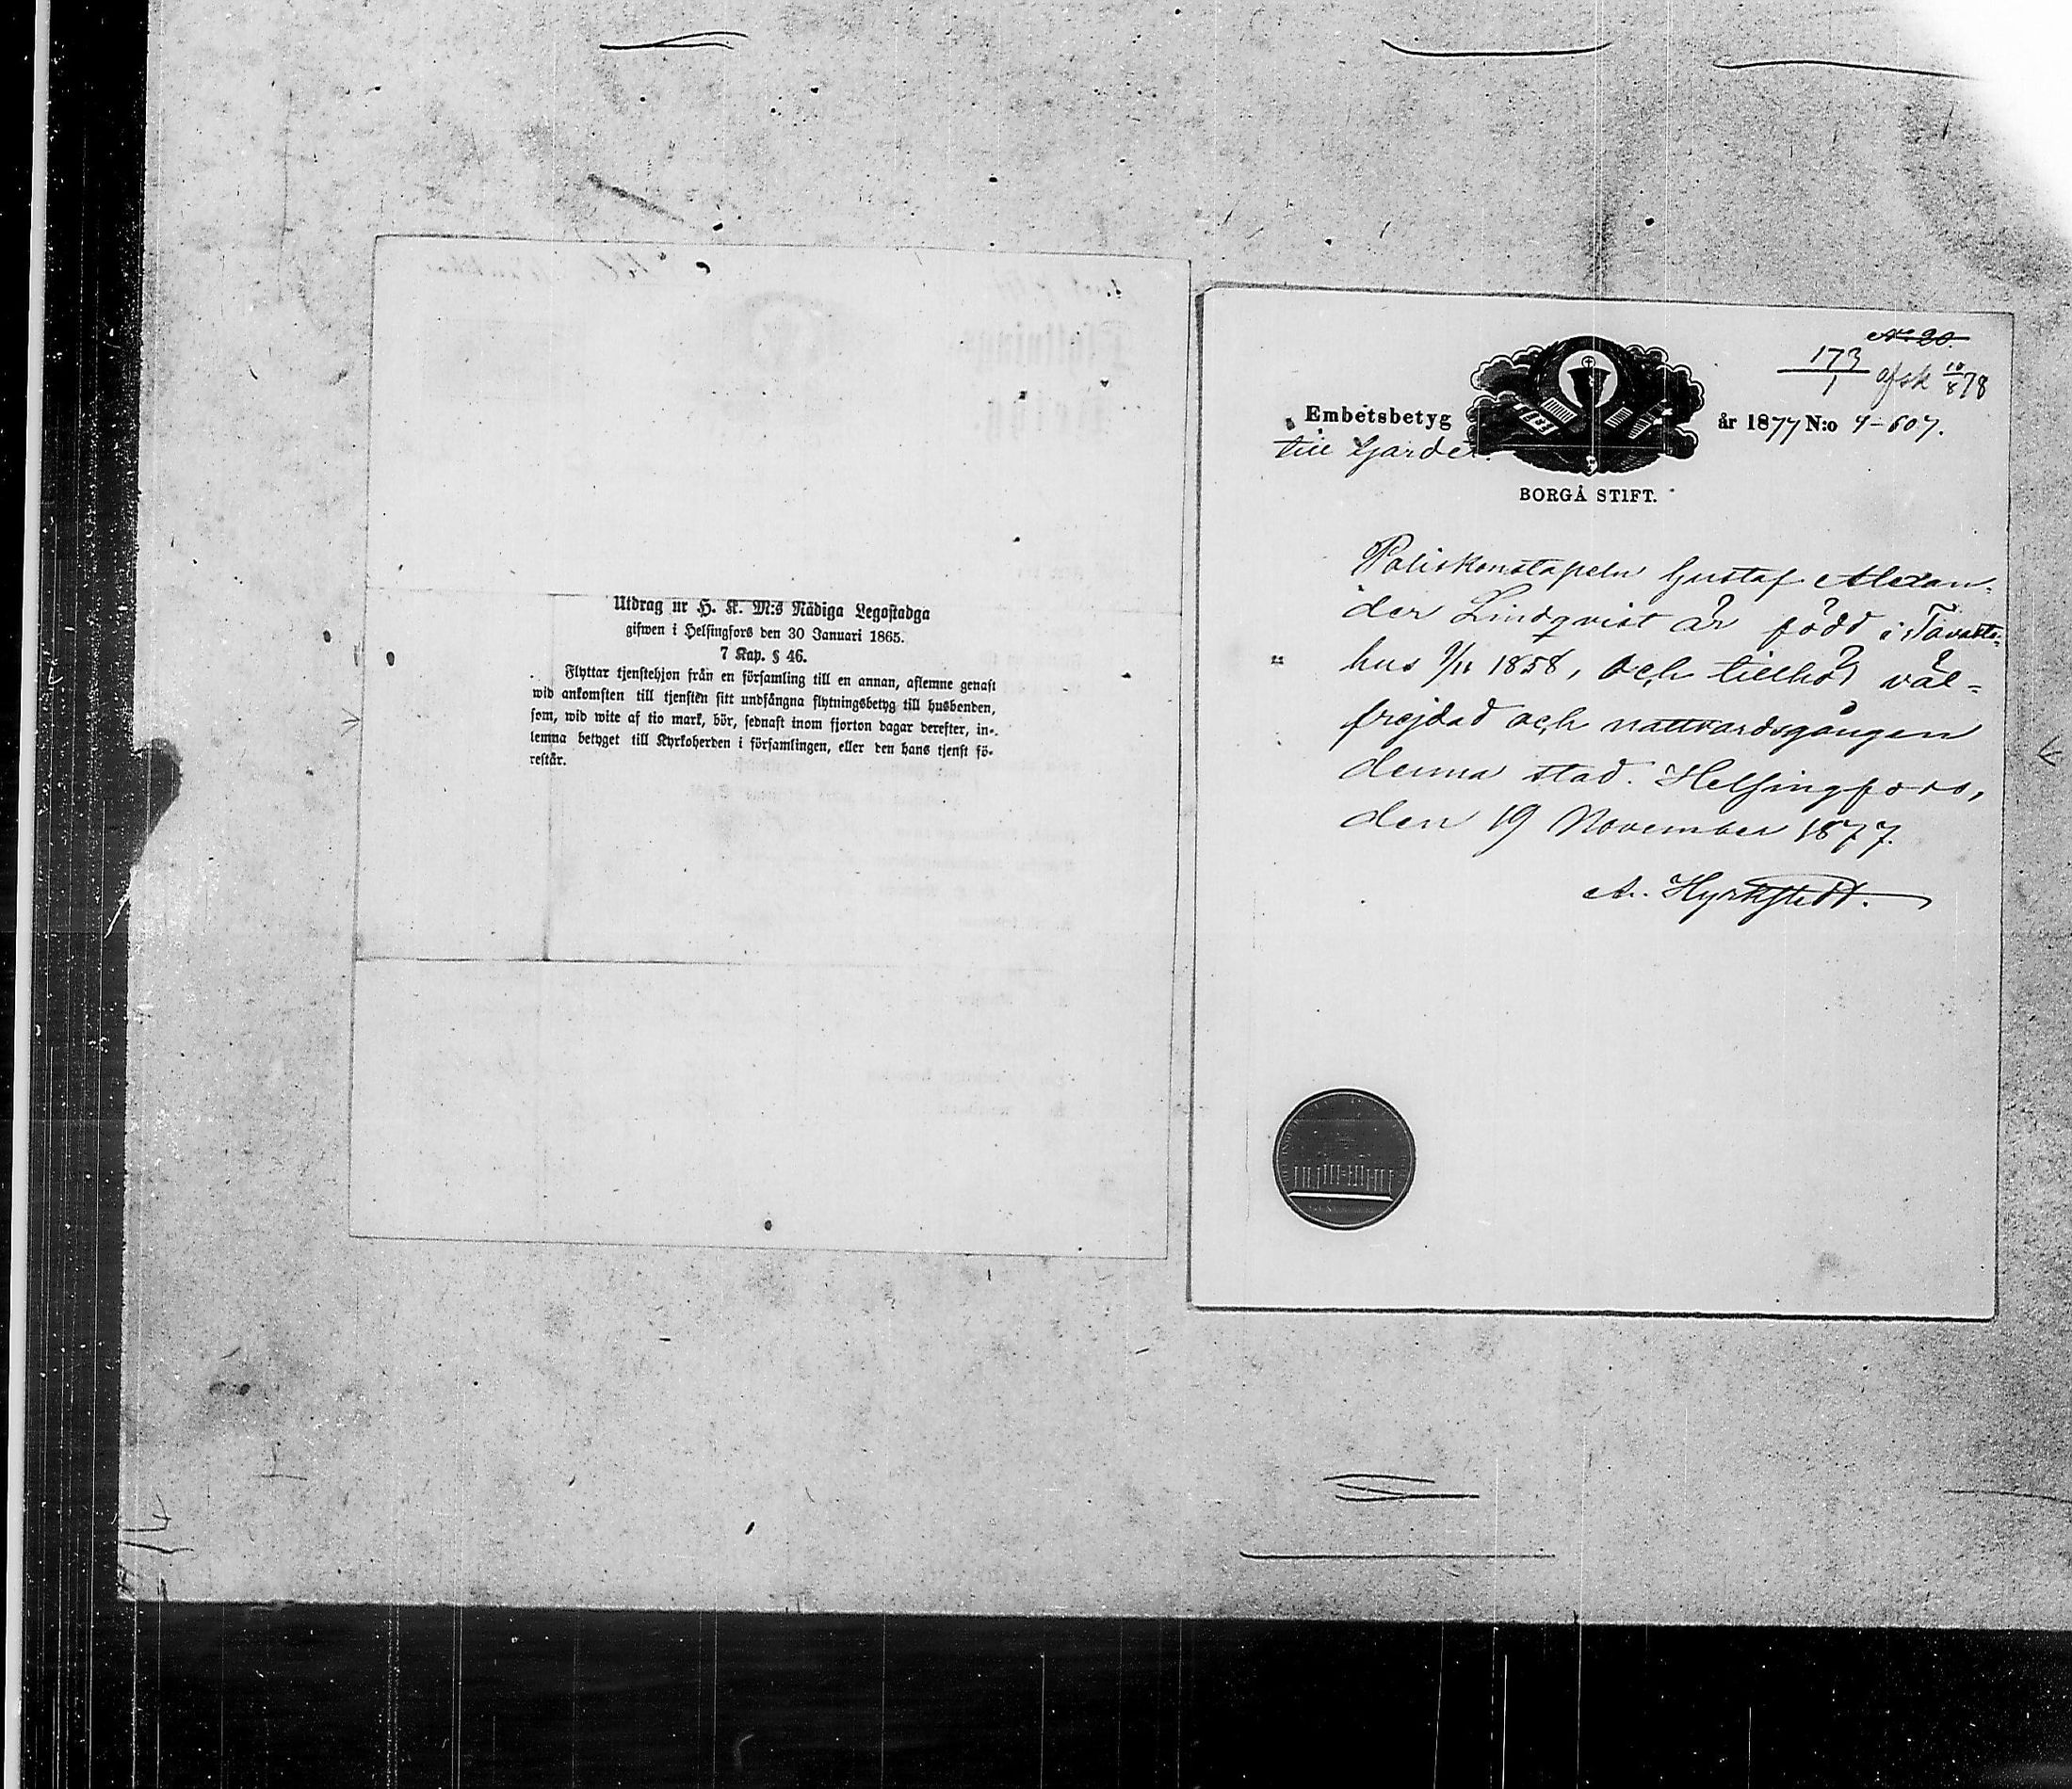 Utdrag ur H. K. M:s Nådiga Legostadga
gifwen i Helsingfors den 30 Januari 1865.
7 Kap. § 46.
Flyttar tjenstehjon från en församling till en annan, aflemne genast
wid ankomsten till tjensten sitt undfångna flyttningsbetyg till husbonden,
som, wid wite af tio mark, bör, sednast inom fjorton dagar derefter, in-
lemna betyget till Kyrkoherden i församlingen, eller den hans tjenst fö-
restår.
No 20.
173/1 afsk 10/8 78
Embetsbetyg år 1877 N:o 4-607.
till Gardet.
BORGÅ STIFT.
Poliskonstapeln Gustaf Alexan-
der Lindqvist är född i Tavaste-
hus 9/11 1858, och tillhör väl-
frejdad och nattvardsgången
denna stad. Helsingfors,
den 19 November 1877.
A. Hyrkstedt.